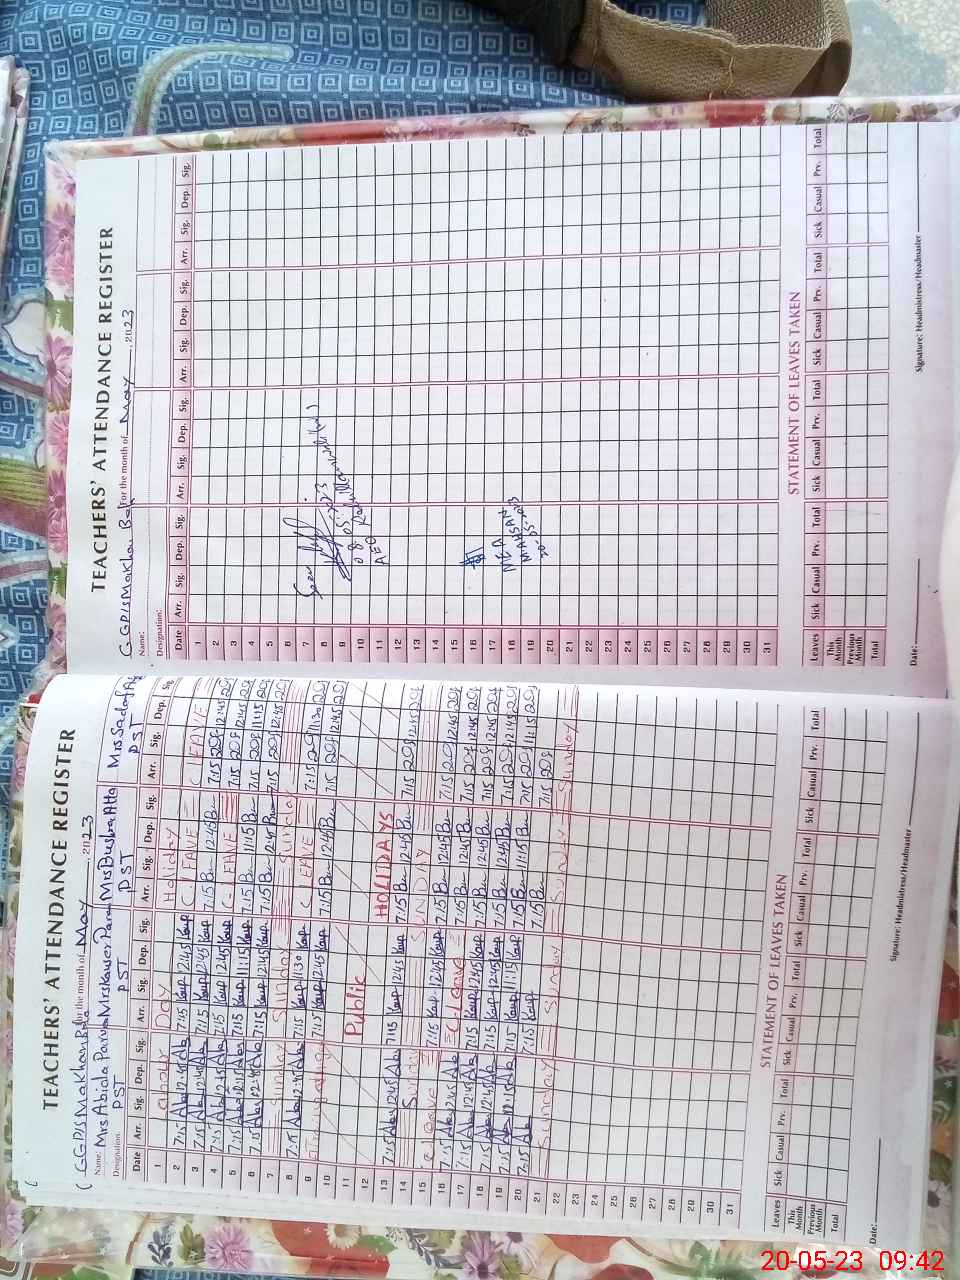 TEACHERS' ATTENDANCE REGISTER
GGP/S Makhan Bela for the month of May, 2023
Name: Mrs Abida Parveen Mrs Kauser Parveen Mrs Bushra Atta Mrs Sadaf
Designation PST PST PST PST
Date Arr. Sig. Dep. Sig. Arr. Sig. Dep. Sig. Arr. Sig. Dep. Sig. Arr. Sig. Dep. Sig.
1 Labour DAY Holiday
2 7:15 12:45 7:15 Kaup 12:45 Kaup C. LEAVE C LEAVE
3 7:15 12:45 7:15 Kaup 12:45 Kaup 7:15 12:45 7:15 12:45
4 7:15 12:45 7:15 Kaup 12:45 Kaup C. LEAVE 7:15 12:45
5 7:15 7:15 Kaup 11:15 Kaup 7:15 11:15 7:15 11:15
6 7:15 12:45 7:15 Kaup 12:45 Kaup 7:15 12:45 7:15 12:45
7 Sunday Sunday Sunday
8 7:15 12:45 7:15 Kaup 11:30 Kaup C LEAVE 7:15 11:30
9 7:15 Kaup 12:45 Kaup 7:15 12:45 7:15 12:45
10
11 Public HOLIDAYS
12
13 7:15 12:45 7:15 Kaup 12:45 Kaup 7:15 12:45 7:15 12:45
14 Sunday SUNDAY
15 C Leave 7:15 Kaup 12:45 Kaup 7:15 12:45 7:15 12:45
16 7:15 12:45 C. Leave 7:15 12:45 7:15 12:45
17 7:15 12:45 7:15 Kaup 12:45 Kaup 7:15 12:45 7:15 12:45
18 7:15 12:45 7:15 Kaup 12:45 Kaup 7:15 12:45 7:15 12:45
19 7:15 7:15 Kaup 11:15 Kaup 7:15 11:15 7:15 11:15
20 7:15 7:15 Kaup 7:15 7:15
21 Sunday Sunday Sunday Sunday
22
23
24
25
26
27
28
29
30
31
STATEMENT OF LEAVES TAKEN
Leaves Sick Casual Prv. Total Sick Casual Prv. Total Sick Casual Prv. Total Sick Casual Prv. Total
This Month
Previous Month
Total
Date:
Signature: Headmistress/Headmaster
TEACHERS' ATTENDANCE REGISTER
GGP/S Makhan Bela For the month of May, 2023
Name:
Designation:
Date Arr. Sig. Dep. Sig. Arr. Sig. Dep. Sig. Arr. Sig. Dep. Sig. Arr. Sig. Dep. Sig.
1
2
3
4
5
6
7
8
9
10
11
12
13
14
15
16
17
18
19
20
21
22
23
24
25
26
27
28
29
30
31
Seen
08.05.2023
AEO
MEA
MAHSAN
20-05-2023
STATEMENT OF LEAVES TAKEN
Leaves Sick Casual Prv. Total Sick Casual Prv. Total Sick Casual Prv. Total Sick Casual Prv. Total
This Month
Previous Month
Total
Date:
Signature: Headmistress/Headmaster
20-05-23 09:42